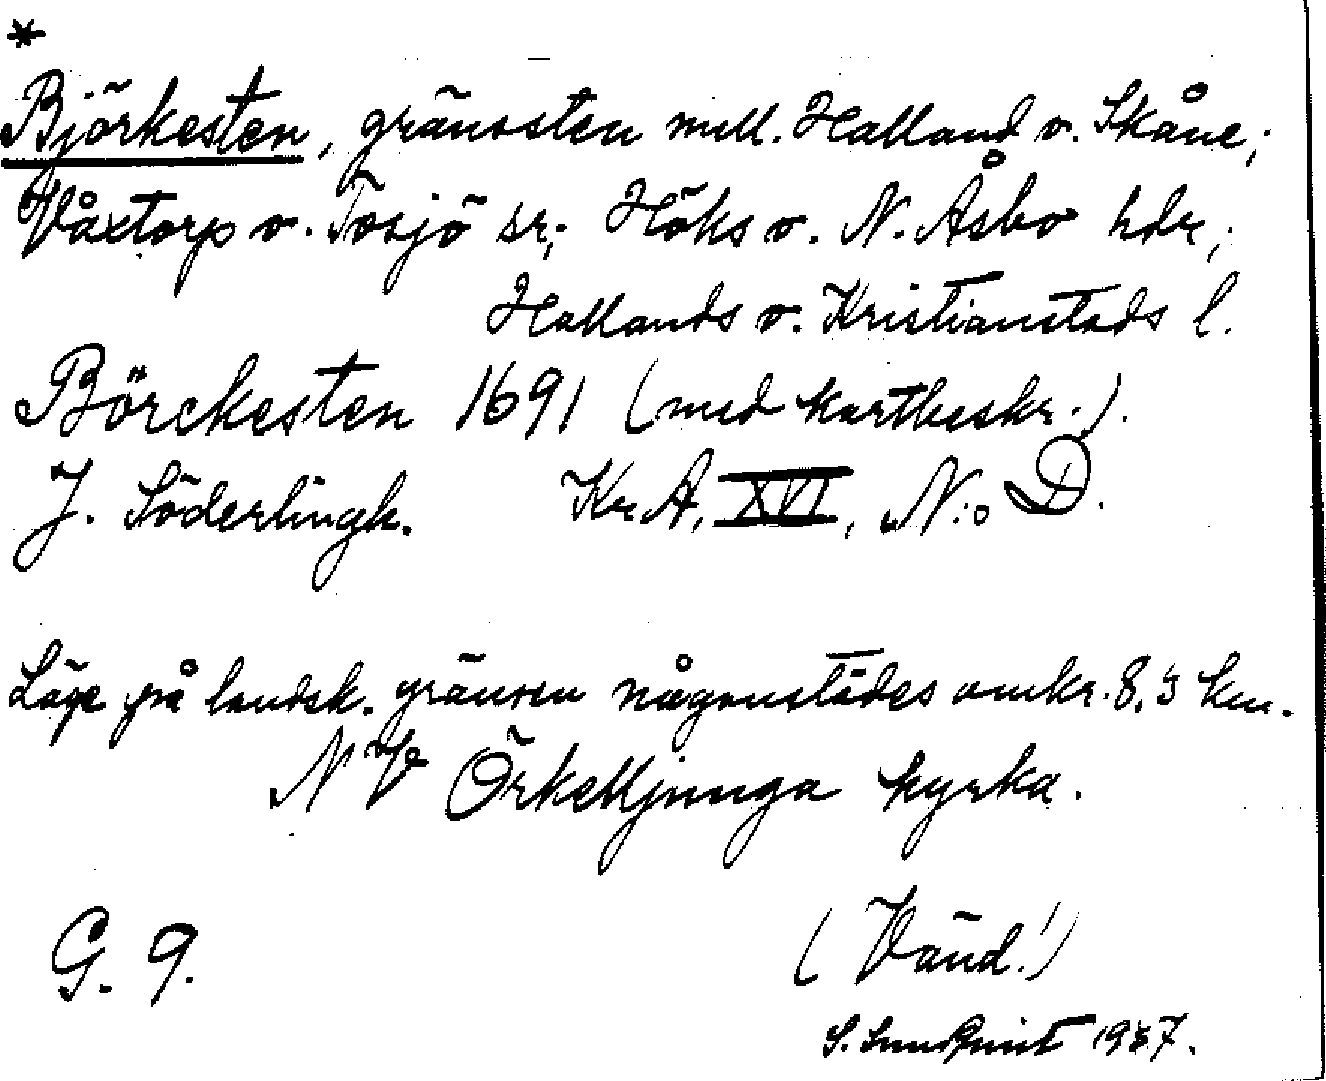 *
Björkesten, gränssten mell. Halland o. Skåne;
Våxtorp o. Tosjö sr; Höks o. N. Åsbo hdr;
Hallands o. Kristianstads l.
Börckesten 1691 (med kartbeskr.).
J. Söderlingk. KrA, XVI, N:o D.
Läge på landsk. gränsen någonstädes omkr. 8,5 km.
NV Örkelljunga kyrka.
G. 9.
(Vänd!)
S. Sundqvist 1937.